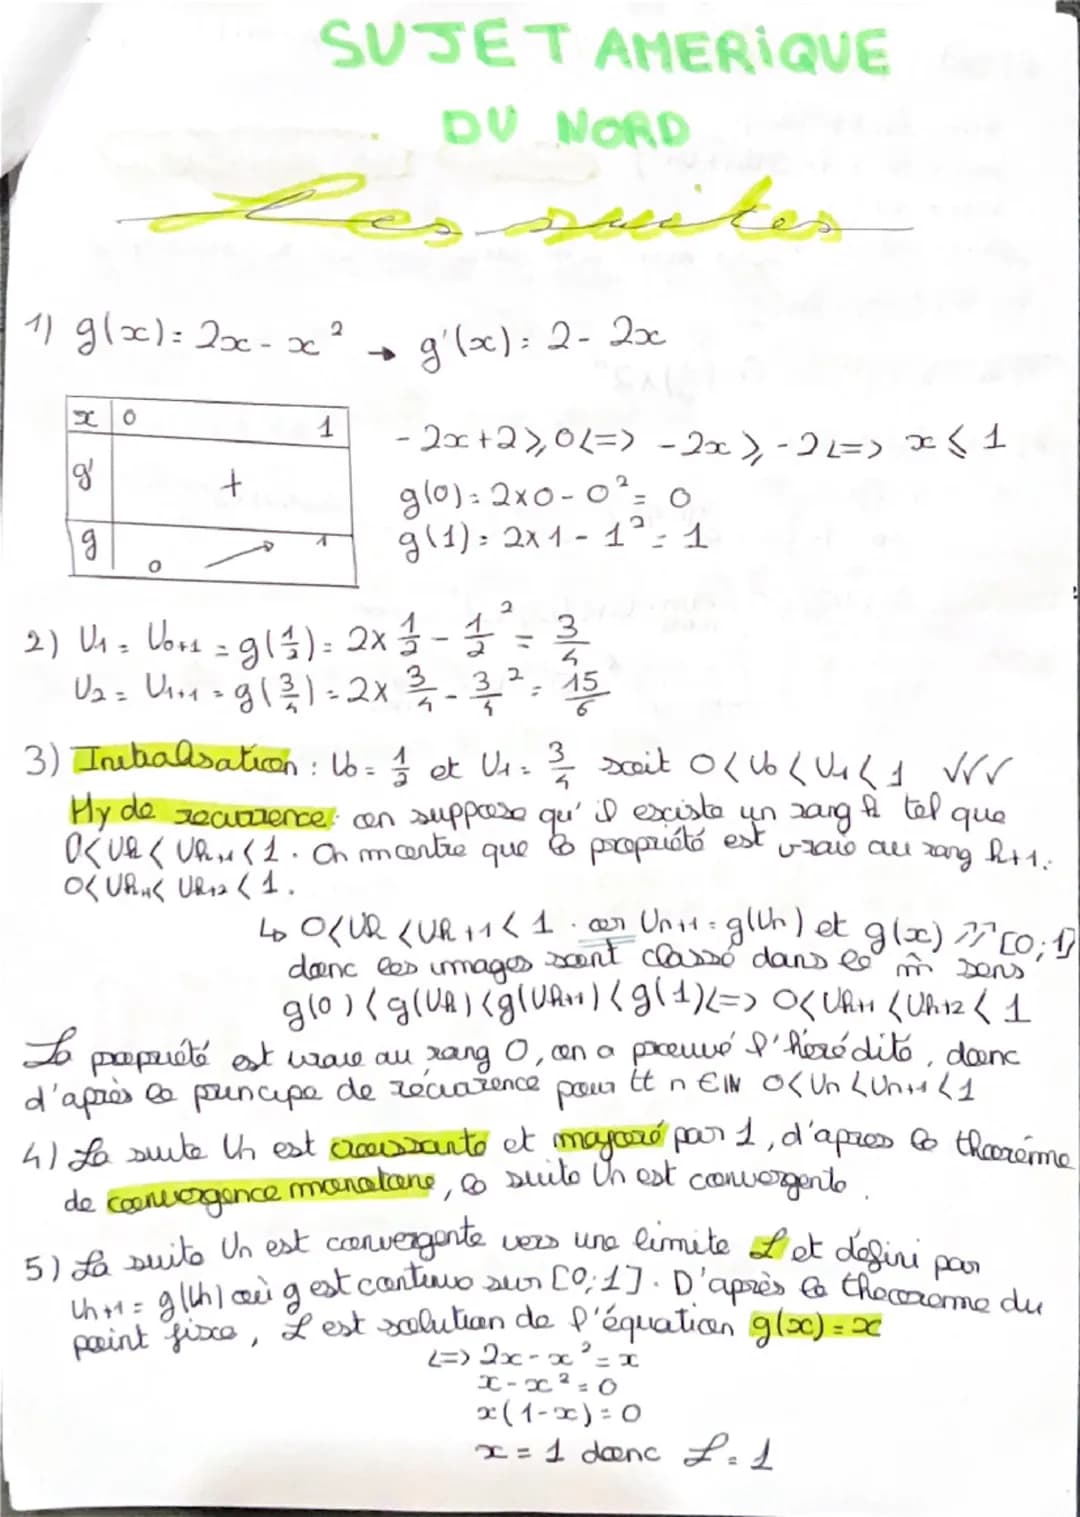 SUJET AMERIQUE
DU NORD
Les suites
1) g(x) = 2x - x² → g'(x) = 2 - 2x
x 0 1
g' +
g 0 1
-2x+2 ⩾ 0 <=> -2x ⩾ -2 <=> x ⩽ 1
g(0) = 2x0 - 0² = 0
g(1) = 2x1 - 1² = 1
2) U1 = U0+1 = g(1/2) = 2x 1/2 - 1/2² = 3/4
U2 = U1+1 = g(3/4) = 2x 3/4 - 3/4² = 15/6
3) Initialisation : U0 = 1/2 et U1 = 3/4 soit 0 < U0 < U1 < 1 VVV
Hy de recurrence: on suppose qu'il existe un rang k tel que
0<Uk< Uk+1<1. On montre que la propriété est vraie au rang k+1.
0< Uk+1< Uk+2 < 1.
↳ 0<Uk <Uk+1< 1. or Un+1 = g(Un) et g(x) ↗↗ [0;1]
donc les images sont classé dans le m̂ sens
g(0) < g(Uk) < g(Uk+1) < g(1) <=> 0< Uk+1 < Uk+2 < 1
La propriété est vraie au rang 0, on a preuvé l'hérédité, donc
d'après le principe de récurrence pour tt n ∈ IN 0<Un<Un+1<1
4) La suite Un est croissante et majoré par 1, d'apres le théorème
de convergence monotone, la suite Un est convergente.
5) La suite Un est convergente vers une limite L et défini par
Un+1 = g(Un) où g est continue sur [0;1]. D'après le theoreme du
point fixe, L est solution de l'équation g(x) = x
<=> 2x - x² = x
x - x² = 0
x(1-x) = 0
x = 1 donc L = 1